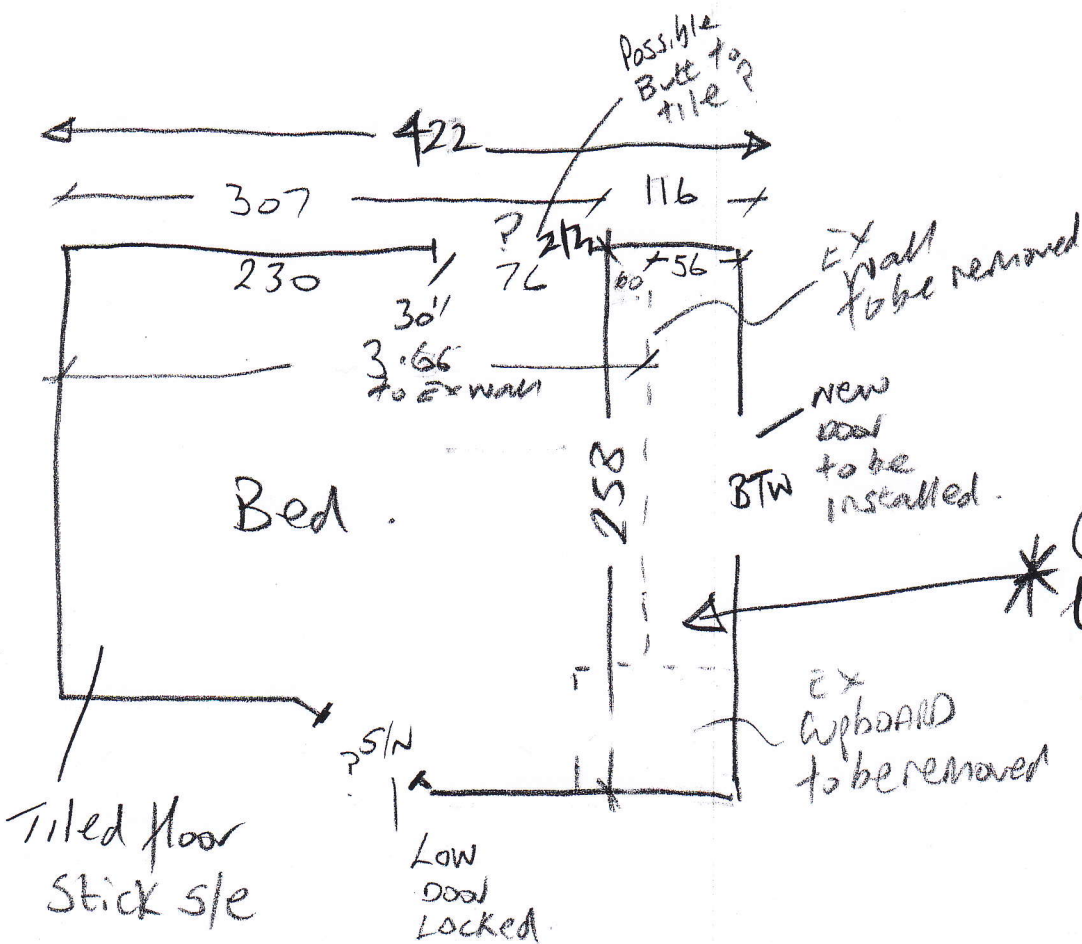 Possible
Butt to
tile?
422
307
116
?
230
76
60
56
Ex
wall
to be removed
30"
3.66
to Ex wall
New
Door
to be
installed.
258
BTW
Bed.
Ex
CupboARD
to be removed
? S/N
Tiled floor
Stick s/e
Low
Door
Locked.